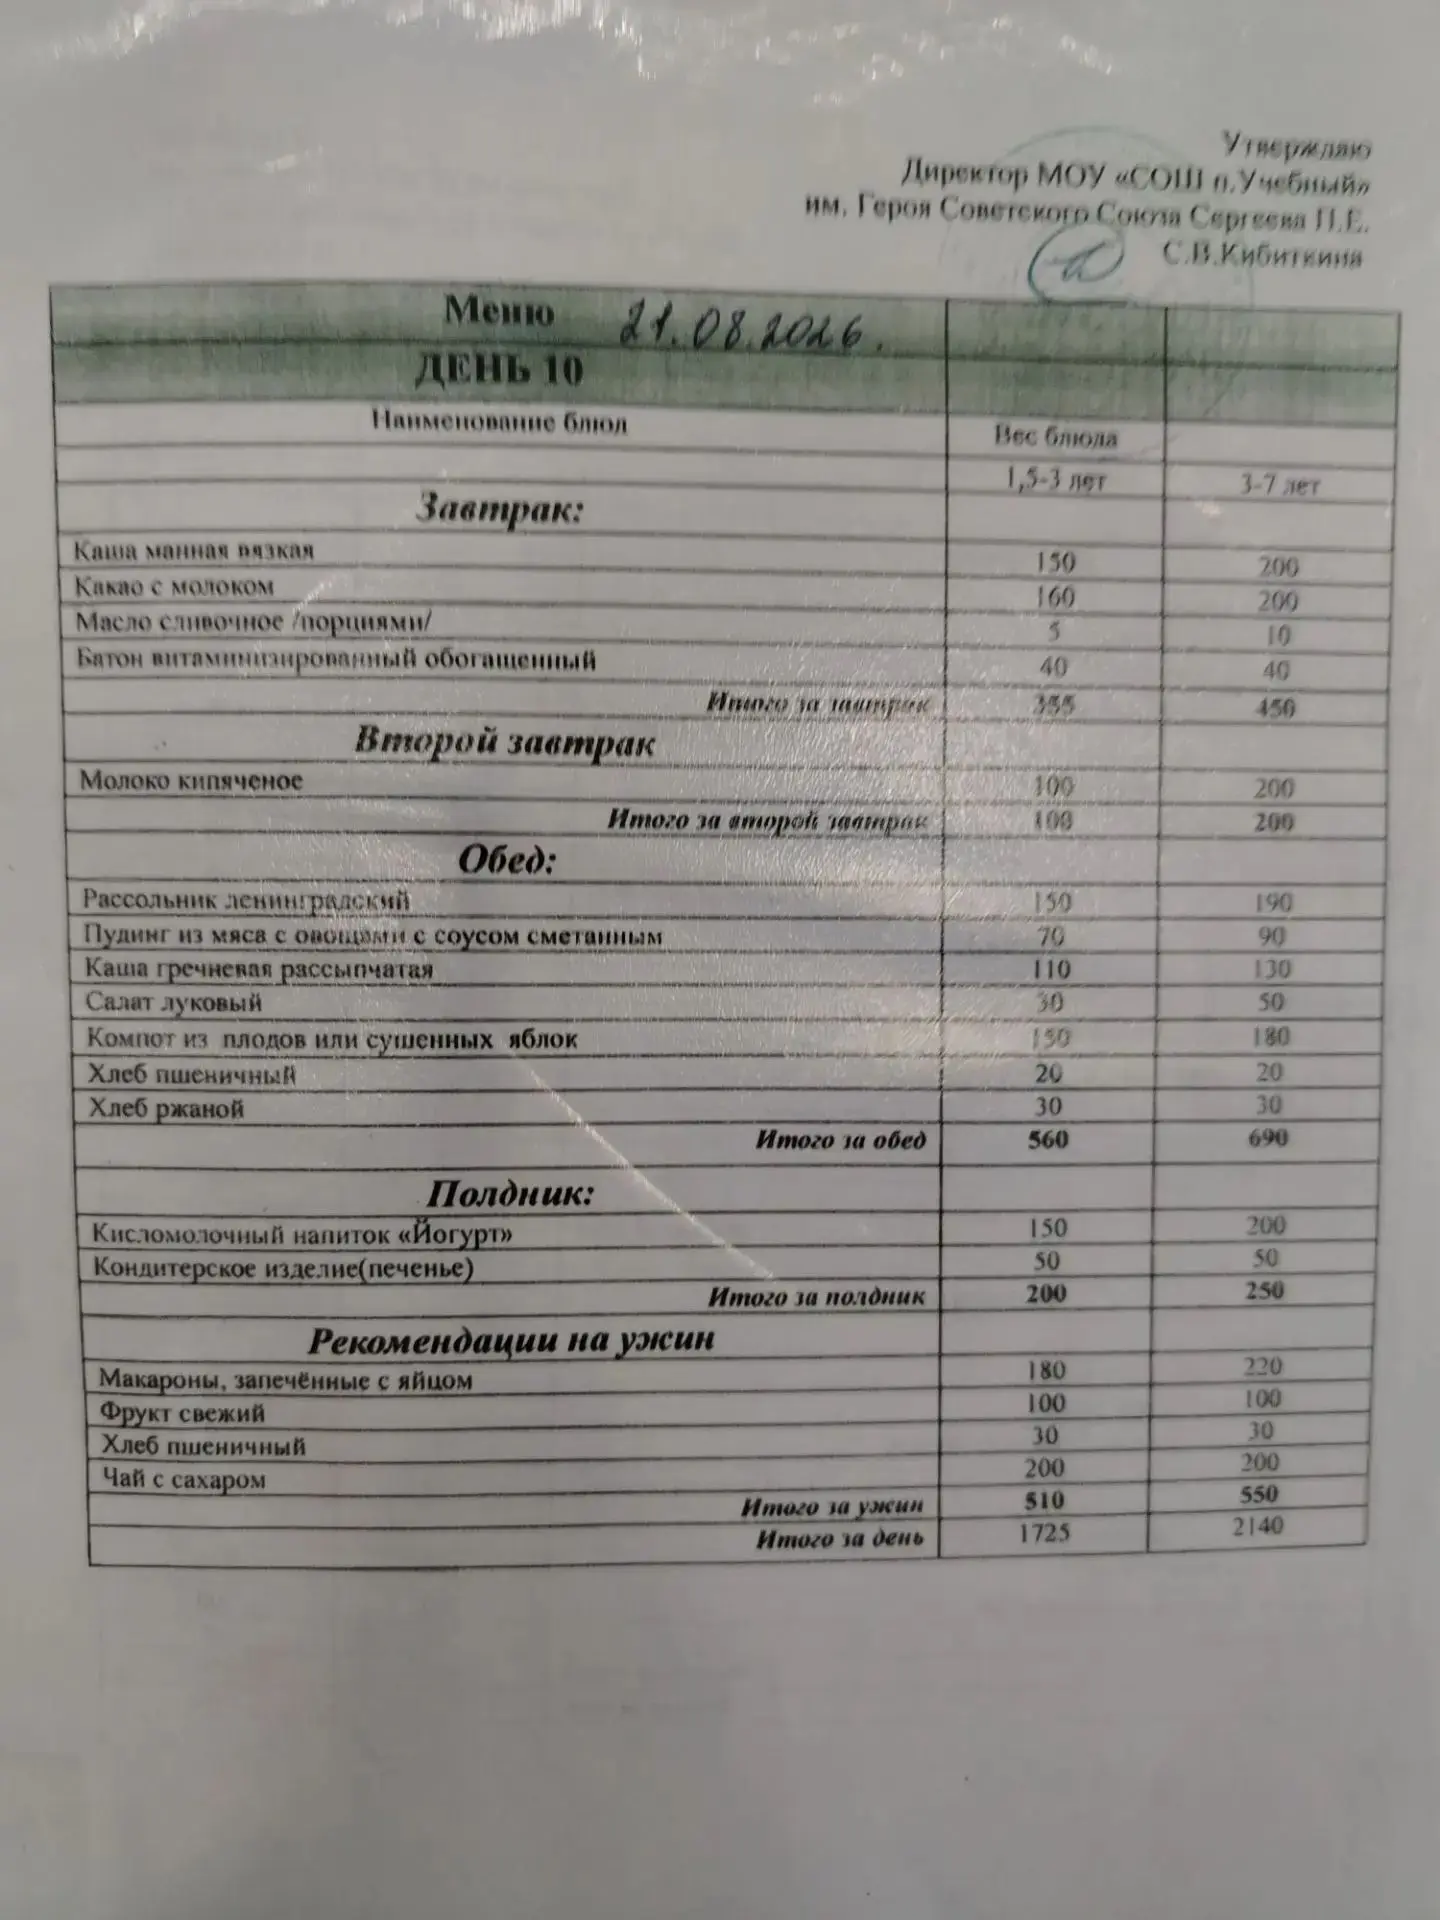 Утверждаю
Директор МОУ «СОШ п.Учебный»
им. Героя Советского Союза Сергеева П.Е.
С.В.Кибиткина
Меню 21.08.2026.
ДЕНЬ 10
Наименование блюд Вес блюда
1,5-3 лет 3-7 лет
Завтрак:
Каша манная вязкая 150 200
Какао с молоком 160 200
Масло сливочное /порциями/ 5 10
Батон витаминизированный обогащенный 40 40
Итого за завтрак 355 450
Второй завтрак
Молоко кипяченое 100 200
Итого за второй завтрак 100 200
Обед:
Рассольник ленинградский 150 190
Пудинг из мяса с овощами с соусом сметанным 70 90
Каша гречневая рассыпчатая 110 130
Салат луковый 30 50
Компот из плодов или сушенных яблок 150 180
Хлеб пшеничный 20 20
Хлеб ржаной 30 30
Итого за обед 560 690
Полдник:
Кисломолочный напиток «Йогурт» 150 200
Кондитерское изделие(печенье) 50 50
Итого за полдник 200 250
Рекомендации на ужин
Макароны, запечённые с яйцом 180 220
Фрукт свежий 100 100
Хлеб пшеничный 30 30
Чай с сахаром 200 200
Итого за ужин 510 550
Итого за день 1725 2140